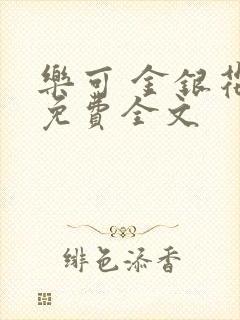 樂可 金銀花
免費全文
緋色添香